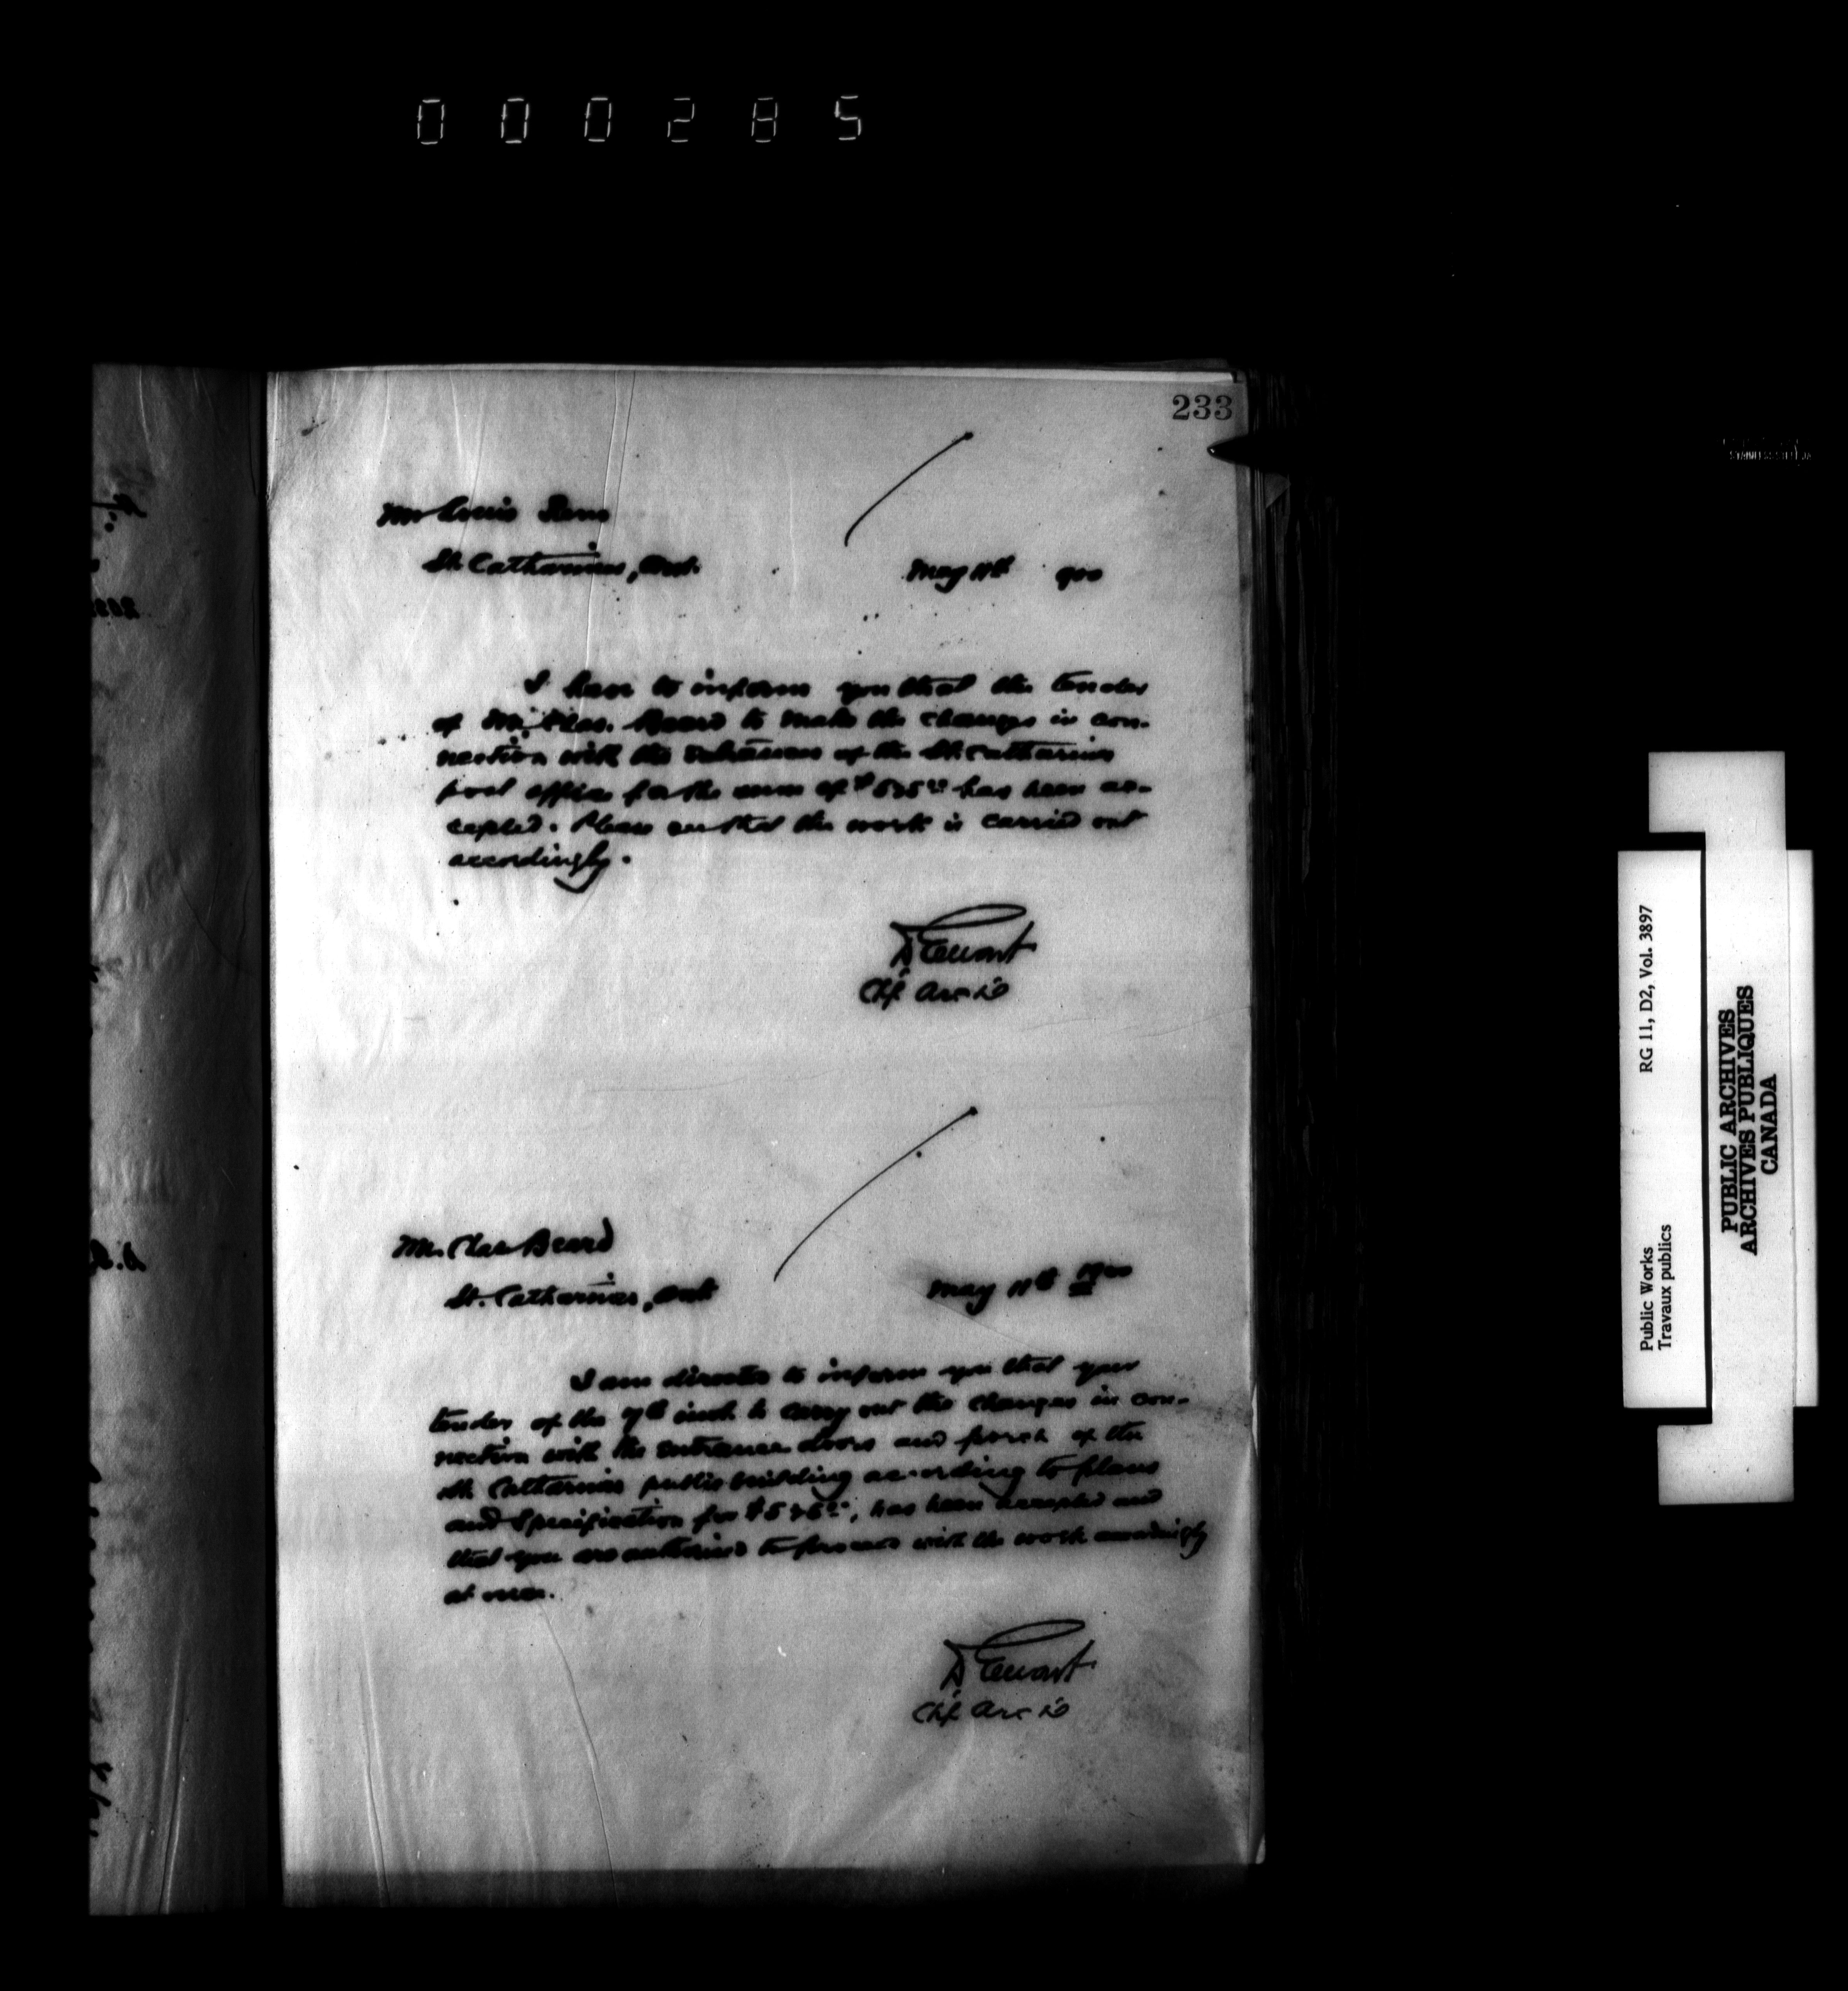 000285
233
Mr Louis
St. Catharines, Ont. May 11th 900
I have to inform you that the tender
of Mr. Chas. Beard to make the changes in con-
nection with the entrances of the St. Catharines
post office for the sum of $575.00 has been ac-
cepted. Please see that the work is carried out
accordingly.
D Ewart
Chf Arct
Mr. Chas Beard
St. Catharines, Ont May 11th 1900
I am directed to inform you that your
tender of the 7th inst. to carry out the changes in con-
nection with the entrance doors and porch of the
St. Catharines public building according to plans
and Specification for $575.00, has been accepted and
that you are authorized to proceed with the work accordingly
at once.
D Ewart
Chf Arct
Public Works RG 11, D2, Vol. 3897
Travaux publics
PUBLIC ARCHIVES
ARCHIVES PUBLIQUES
CANADA